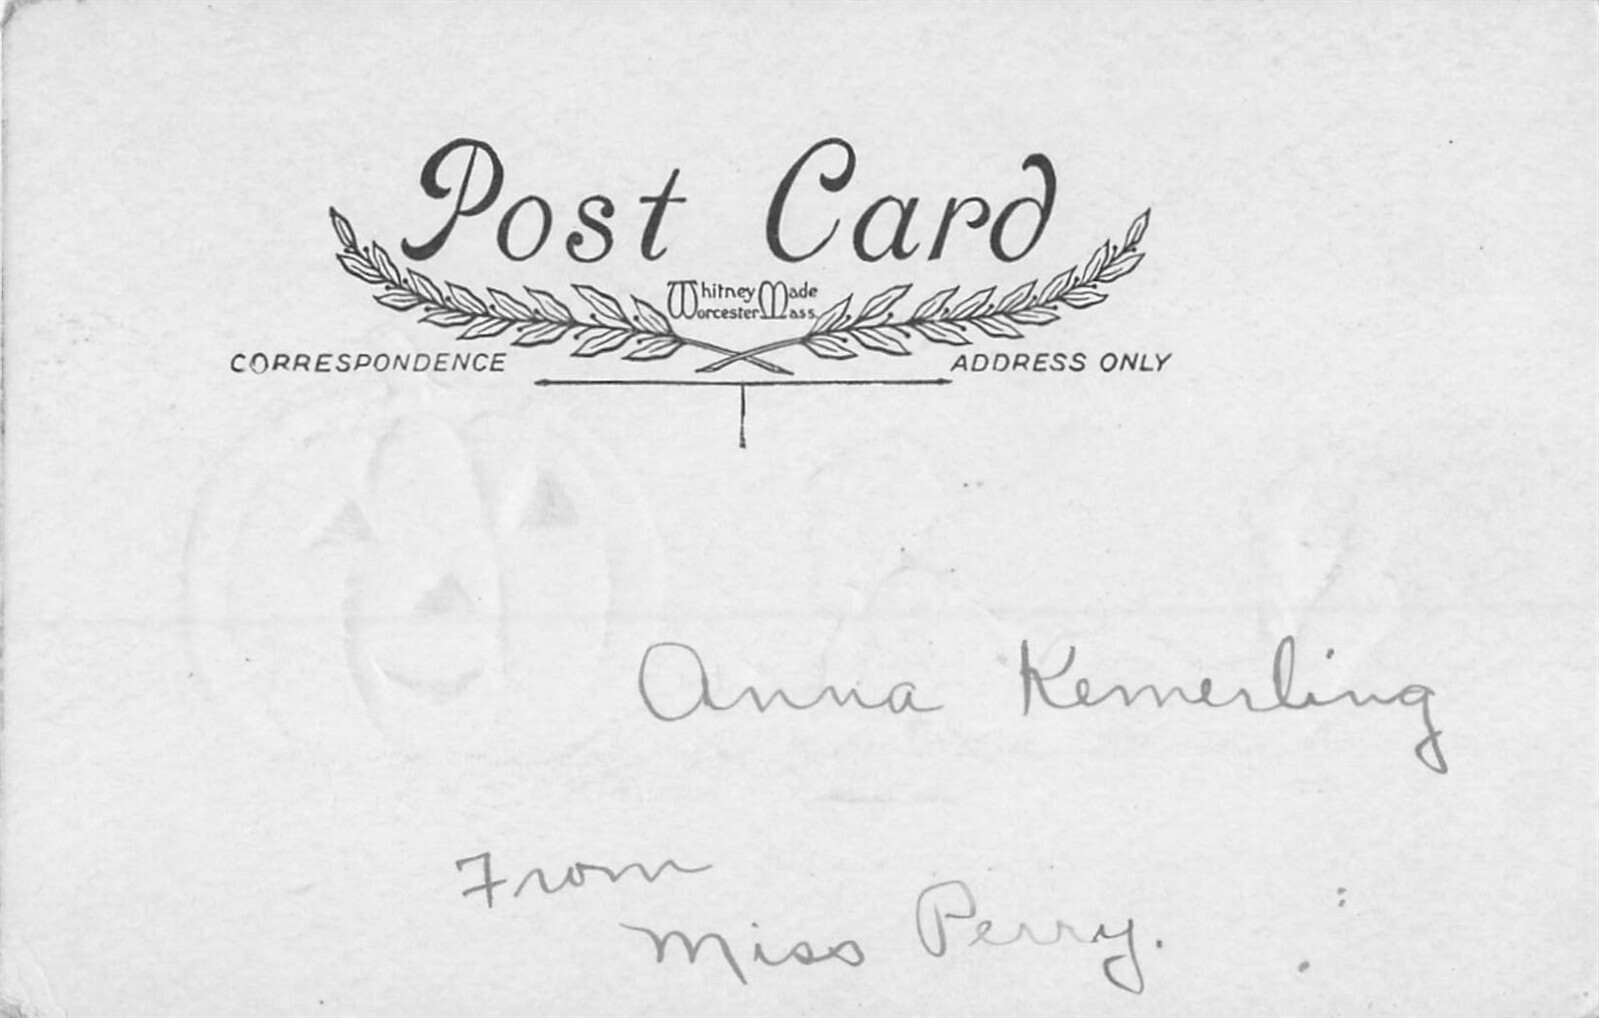 Post Card
Whitney Made
Worcester Mass.
CORRESPONDENCE
ADDRESS ONLY
Anna Kemerling
From
Miss Perry.